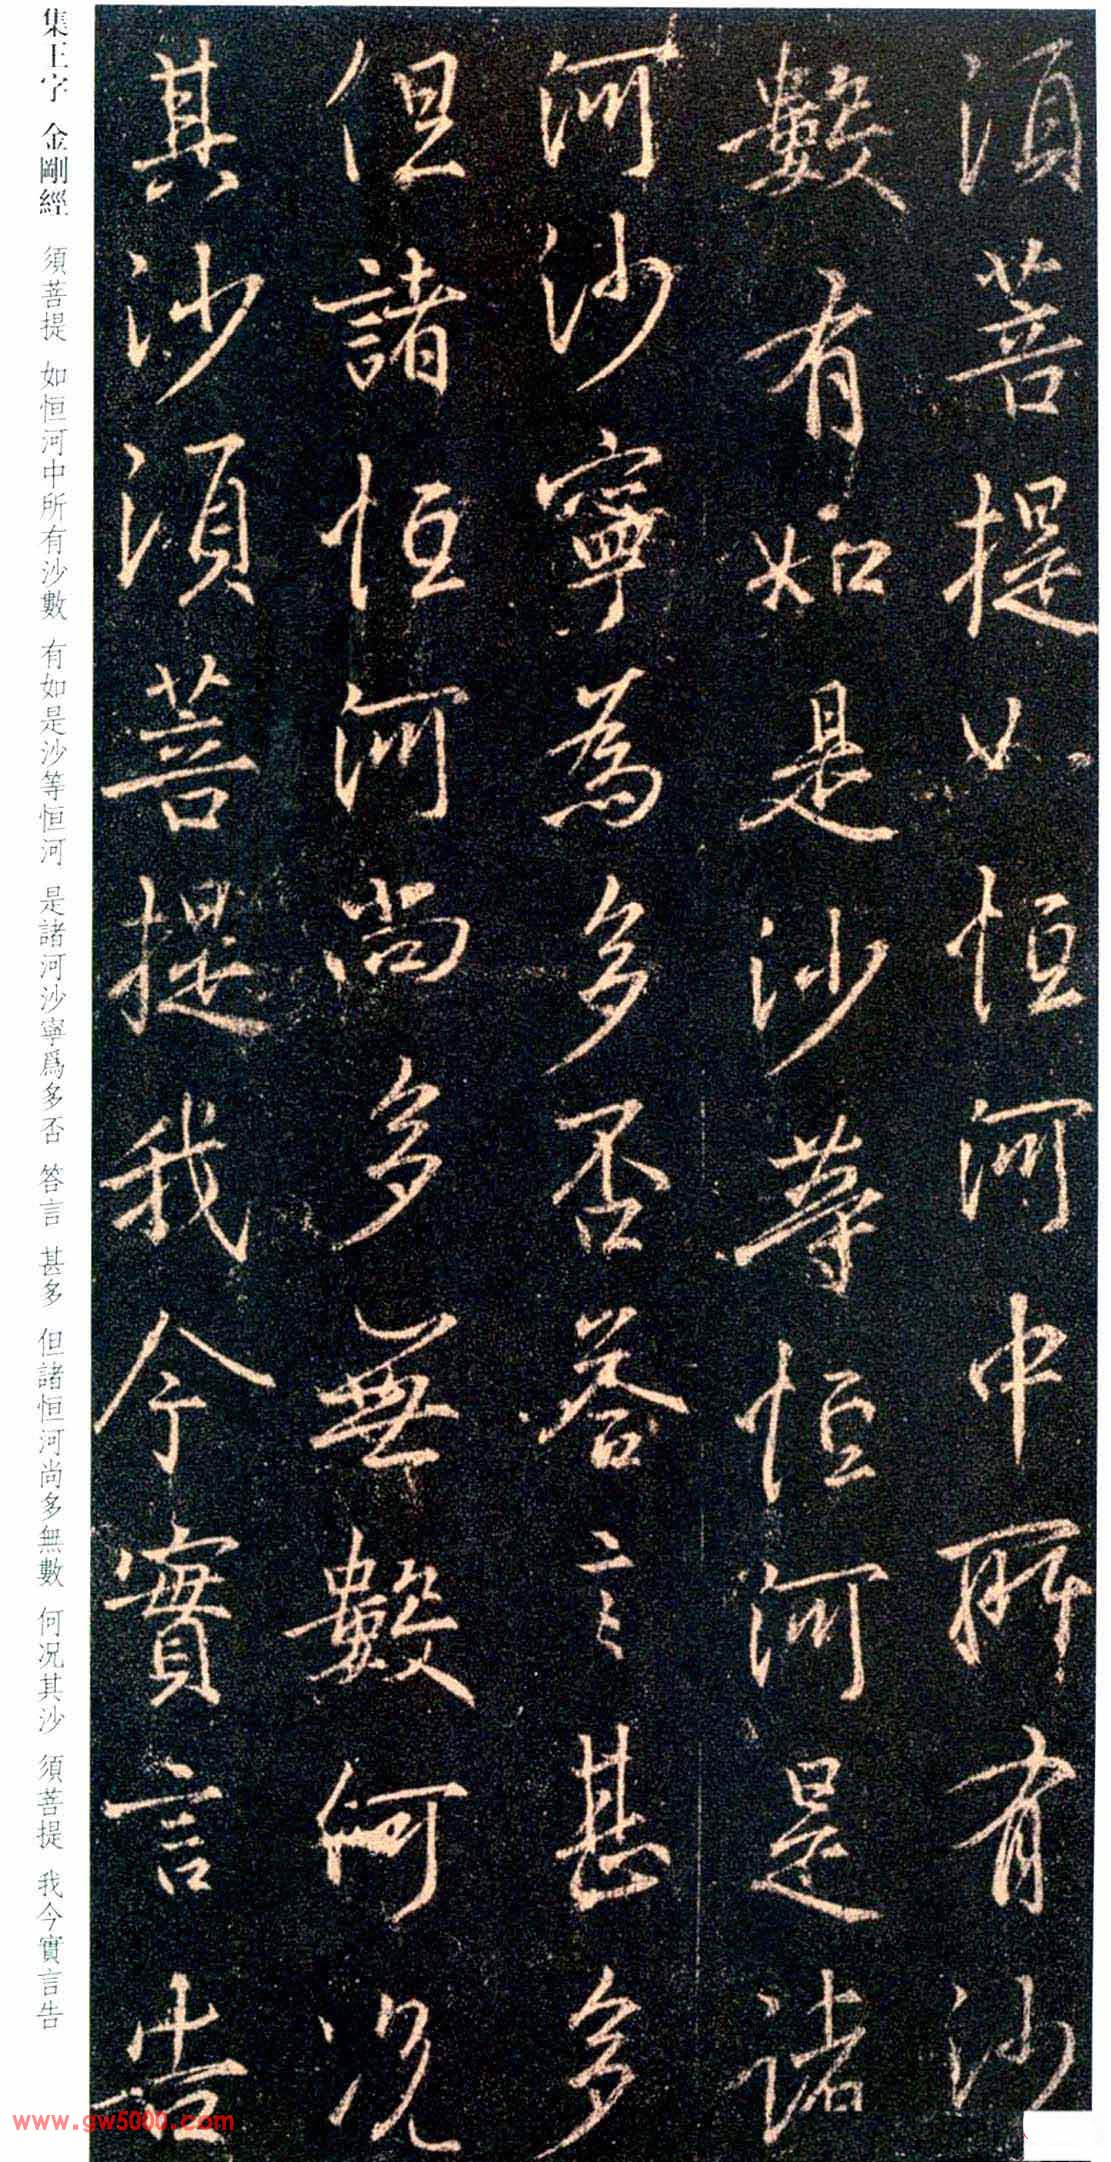 須菩提如恒河中所有沙
數有如是沙等恒河是諸
河沙寧為多否答言甚多
但諸恒河尚多無數何況
其沙須菩提我今實言告
集王字 金剛經 須菩提 如恒河中所有沙數 有如是沙等恒河 是諸河沙寧爲多否 答言 甚多 但諸恒河尚多無數 何況其沙 須菩提 我今實言告
www.gw5000.com